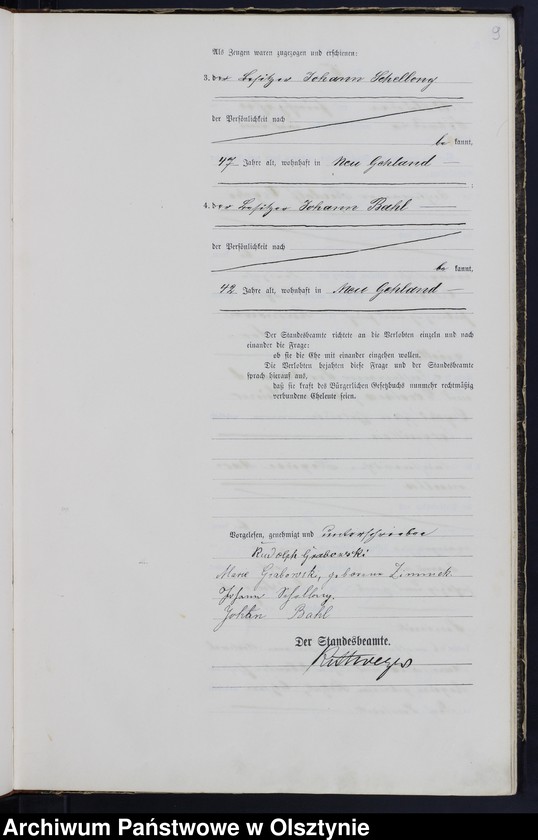 9
Als Zeugen waren zugezogen und erschienen:
3. der Besitzer Johann Schellong
der Persönlichkeit nach
be kannt,
47 Jahre alt, wohnhaft in Neu Gehland
4. der Besitzer Johann Bahl
der Persönlichkeit nach
be kannt,
42 Jahre alt, wohnhaft in Neu Gehland
Der Standesbeamte richtete an die Verlobten einzeln und nach
einander die Frage:
ob sie die Ehe mit einander eingehen wollen.
Die Verlobten bejahten diese Frage und der Standesbeamte
sprach hierauf aus,
daß sie kraft des Bürgerlichen Gesetzbuchs nunmehr rechtmäßig
verbundene Eheleute seien.
Vorgelesen, genehmigt und unterschrieben
Rudolph Grabowski
Grabowski, geborene
Johann Schellong.
Bahl
Der Standesbeamte.
Archiwum Państwowe w Olsztynie